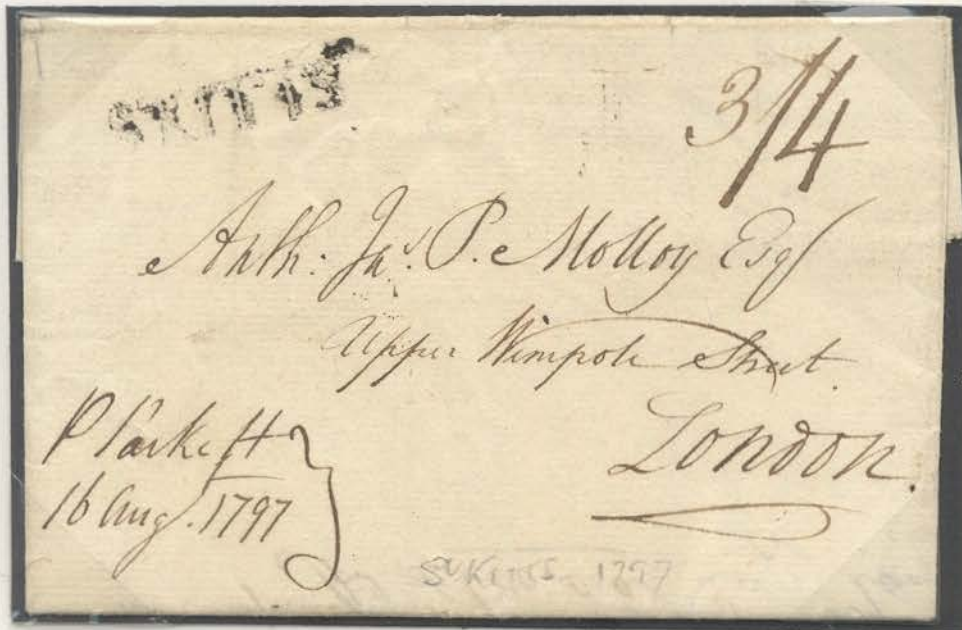 St KITTS
3/4
Anth: Jas. P. Molloy Esqr
Upper Wimpole Street.
London.
P Packett
16 Aug. 1797
St KITTS 1797